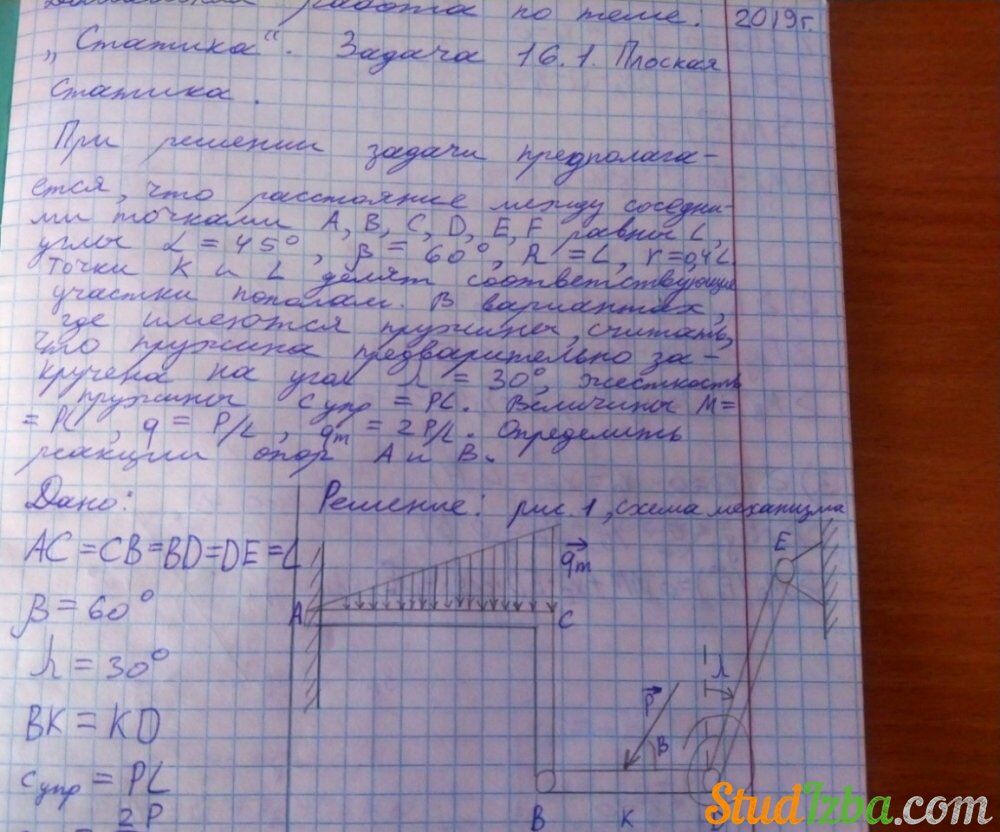 работа по теме: 2019г.
„Статика“. Задача 16.1. Плоская
статика.
При решении задачи предполага-
ется, что расстояние между соседни-
ми точками A, B, C, D, E, F равны L,
углы α = 45°, β = 60°, R = L, r = 0,4L.
Точки K и L делят соответствующие
участки пополам. В вариантах,
где имеются пружины, считать,
что пружина предварительно за-
кручена на угол λ = 30°, жесткость
пружины Cупр = PL. Величины M =
= PL, q = P/L, qm = 2P/L. Определить
реакции опор A и B.
Дано:
Решение: рис. 1, схема механизма
AC = CB = BD = DE = L
β = 60°
λ = 30°
BK = KD
Cупр = PL
2P
A
C
qm
E
λ
P
β
B
K
StudIzba.com